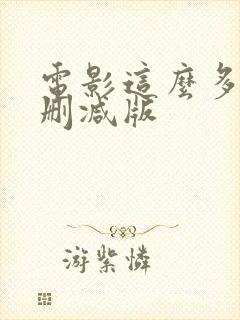 電影這麼多
刪減版
游紫憐